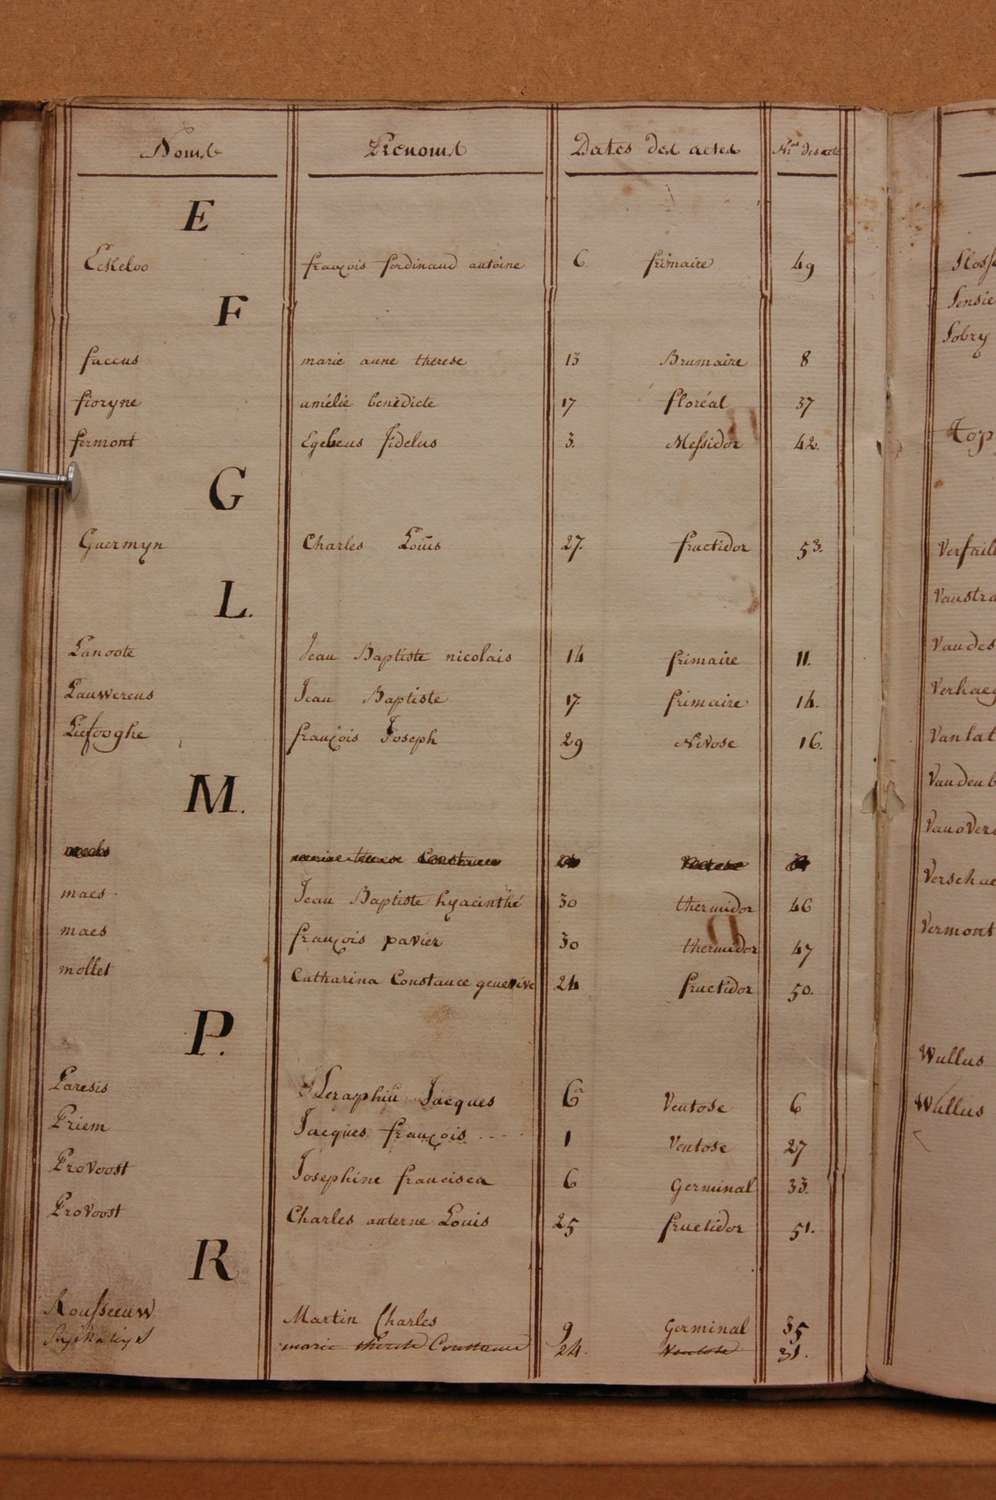 Noms Prénoms Dates des actes N.os des actes
E
Eckeloo françois ferdinand antoine 6 frimaire 49
F
faccus marie anne therese 13 Brumaire 8
fioryne amélie benedicte 17 floréal 37
fermont Egebeus fidelus 3. Messidor 42.
G
Guermyn Charles Louis 27. fructidor 53.
L.
Lanoote Jean Baptiste nicolais 14 frimaire 11.
Lauwereus Jean Baptiste 17 frimaire 14.
Liefooghe françois Joseph 29 Nivose 16.
M.
marie therese Constance Ventose
maes Jean Baptiste hyacinthé 30 thermidor 46
maes françois pavier 30 thermidor 47
mollet Catharina Constance genevive 24 fructidor 50.
P.
Paresis Seraphin Jacques 6 Ventose 6
Priem Jacques françois 1 Ventose 27
ProVoost Josephine francisca 6 Germinal 33.
ProVoost Charles anterne Louis 25 fructidor 51.
R
Rousseeuw Martin Charles 9 Germinal 35
marie therese Constance 24. Ventose 31.
Sensie
Sobry
Top
Verfaill
Vanstra
Vandes
Verhaeg
Vanlat
Vandenb
Vanovers
Verschae
Vermont
Wullus
Wullus